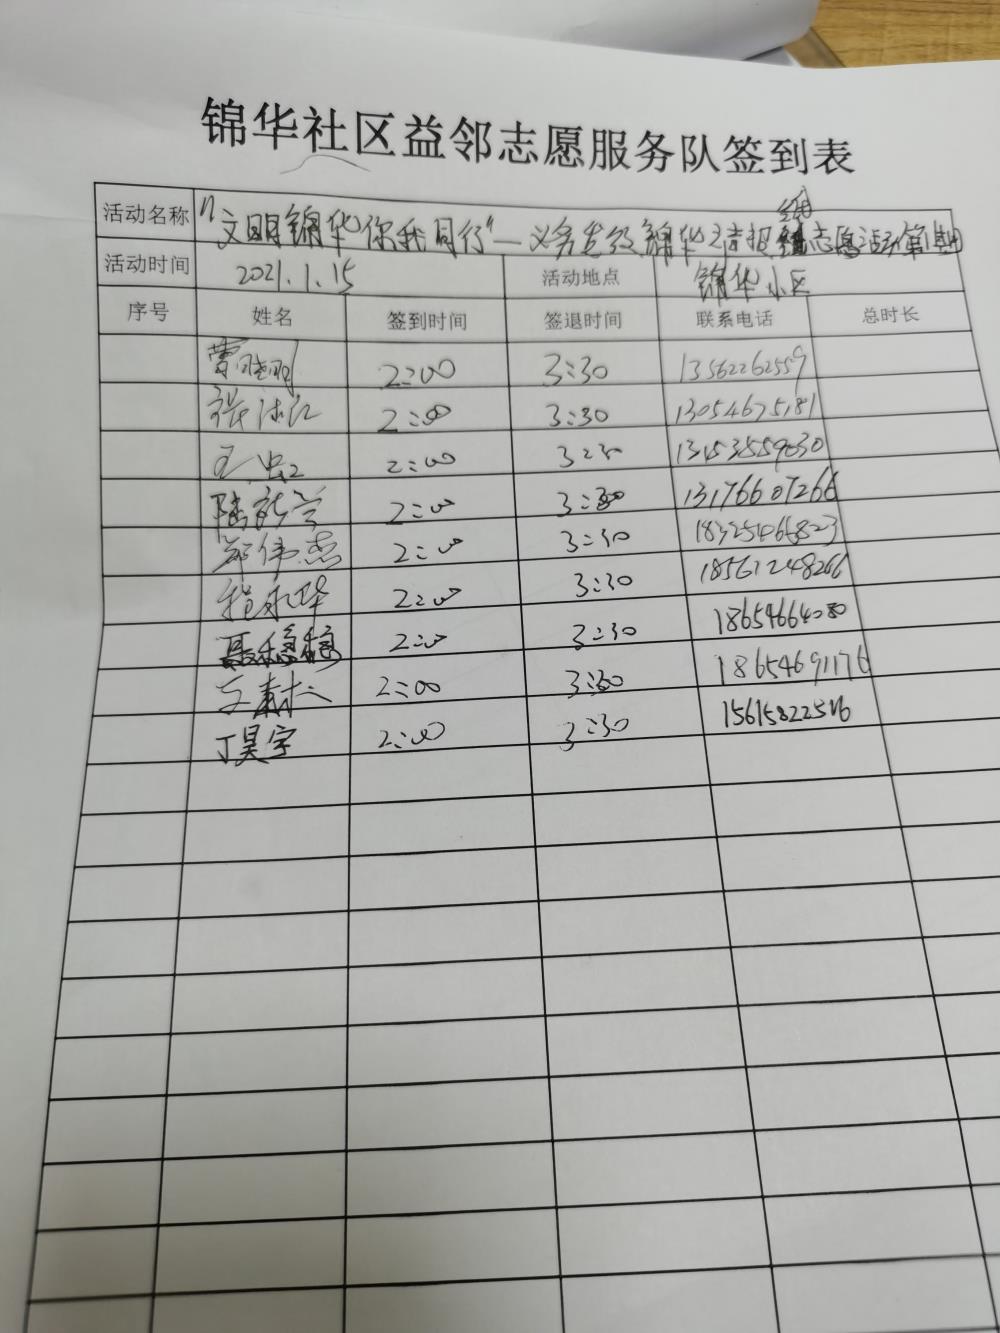 锦华社区益邻志愿服务队签到表
活动名称 "文明锦华你我同行"—义务发放锦华之声报纸志愿活动第1期
活动时间 2021.1.15 活动地点 锦华小区
序号 姓名 签到时间 签退时间 联系电话 总时长
曹晓明 2:00 3:30 13562262559
张冰江 2:00 3:30 13054675181
2:00 3:30
陆新学 2:00 3:30 13176607266
郑伟杰 2:00 3:30 18325466823
程永华 2:00 3:30 18561248266
聂稳稳 2:00 3:30 18654664080
2:00 3:30 18654691176
丁昊宇 2:00 3:30 15615822516